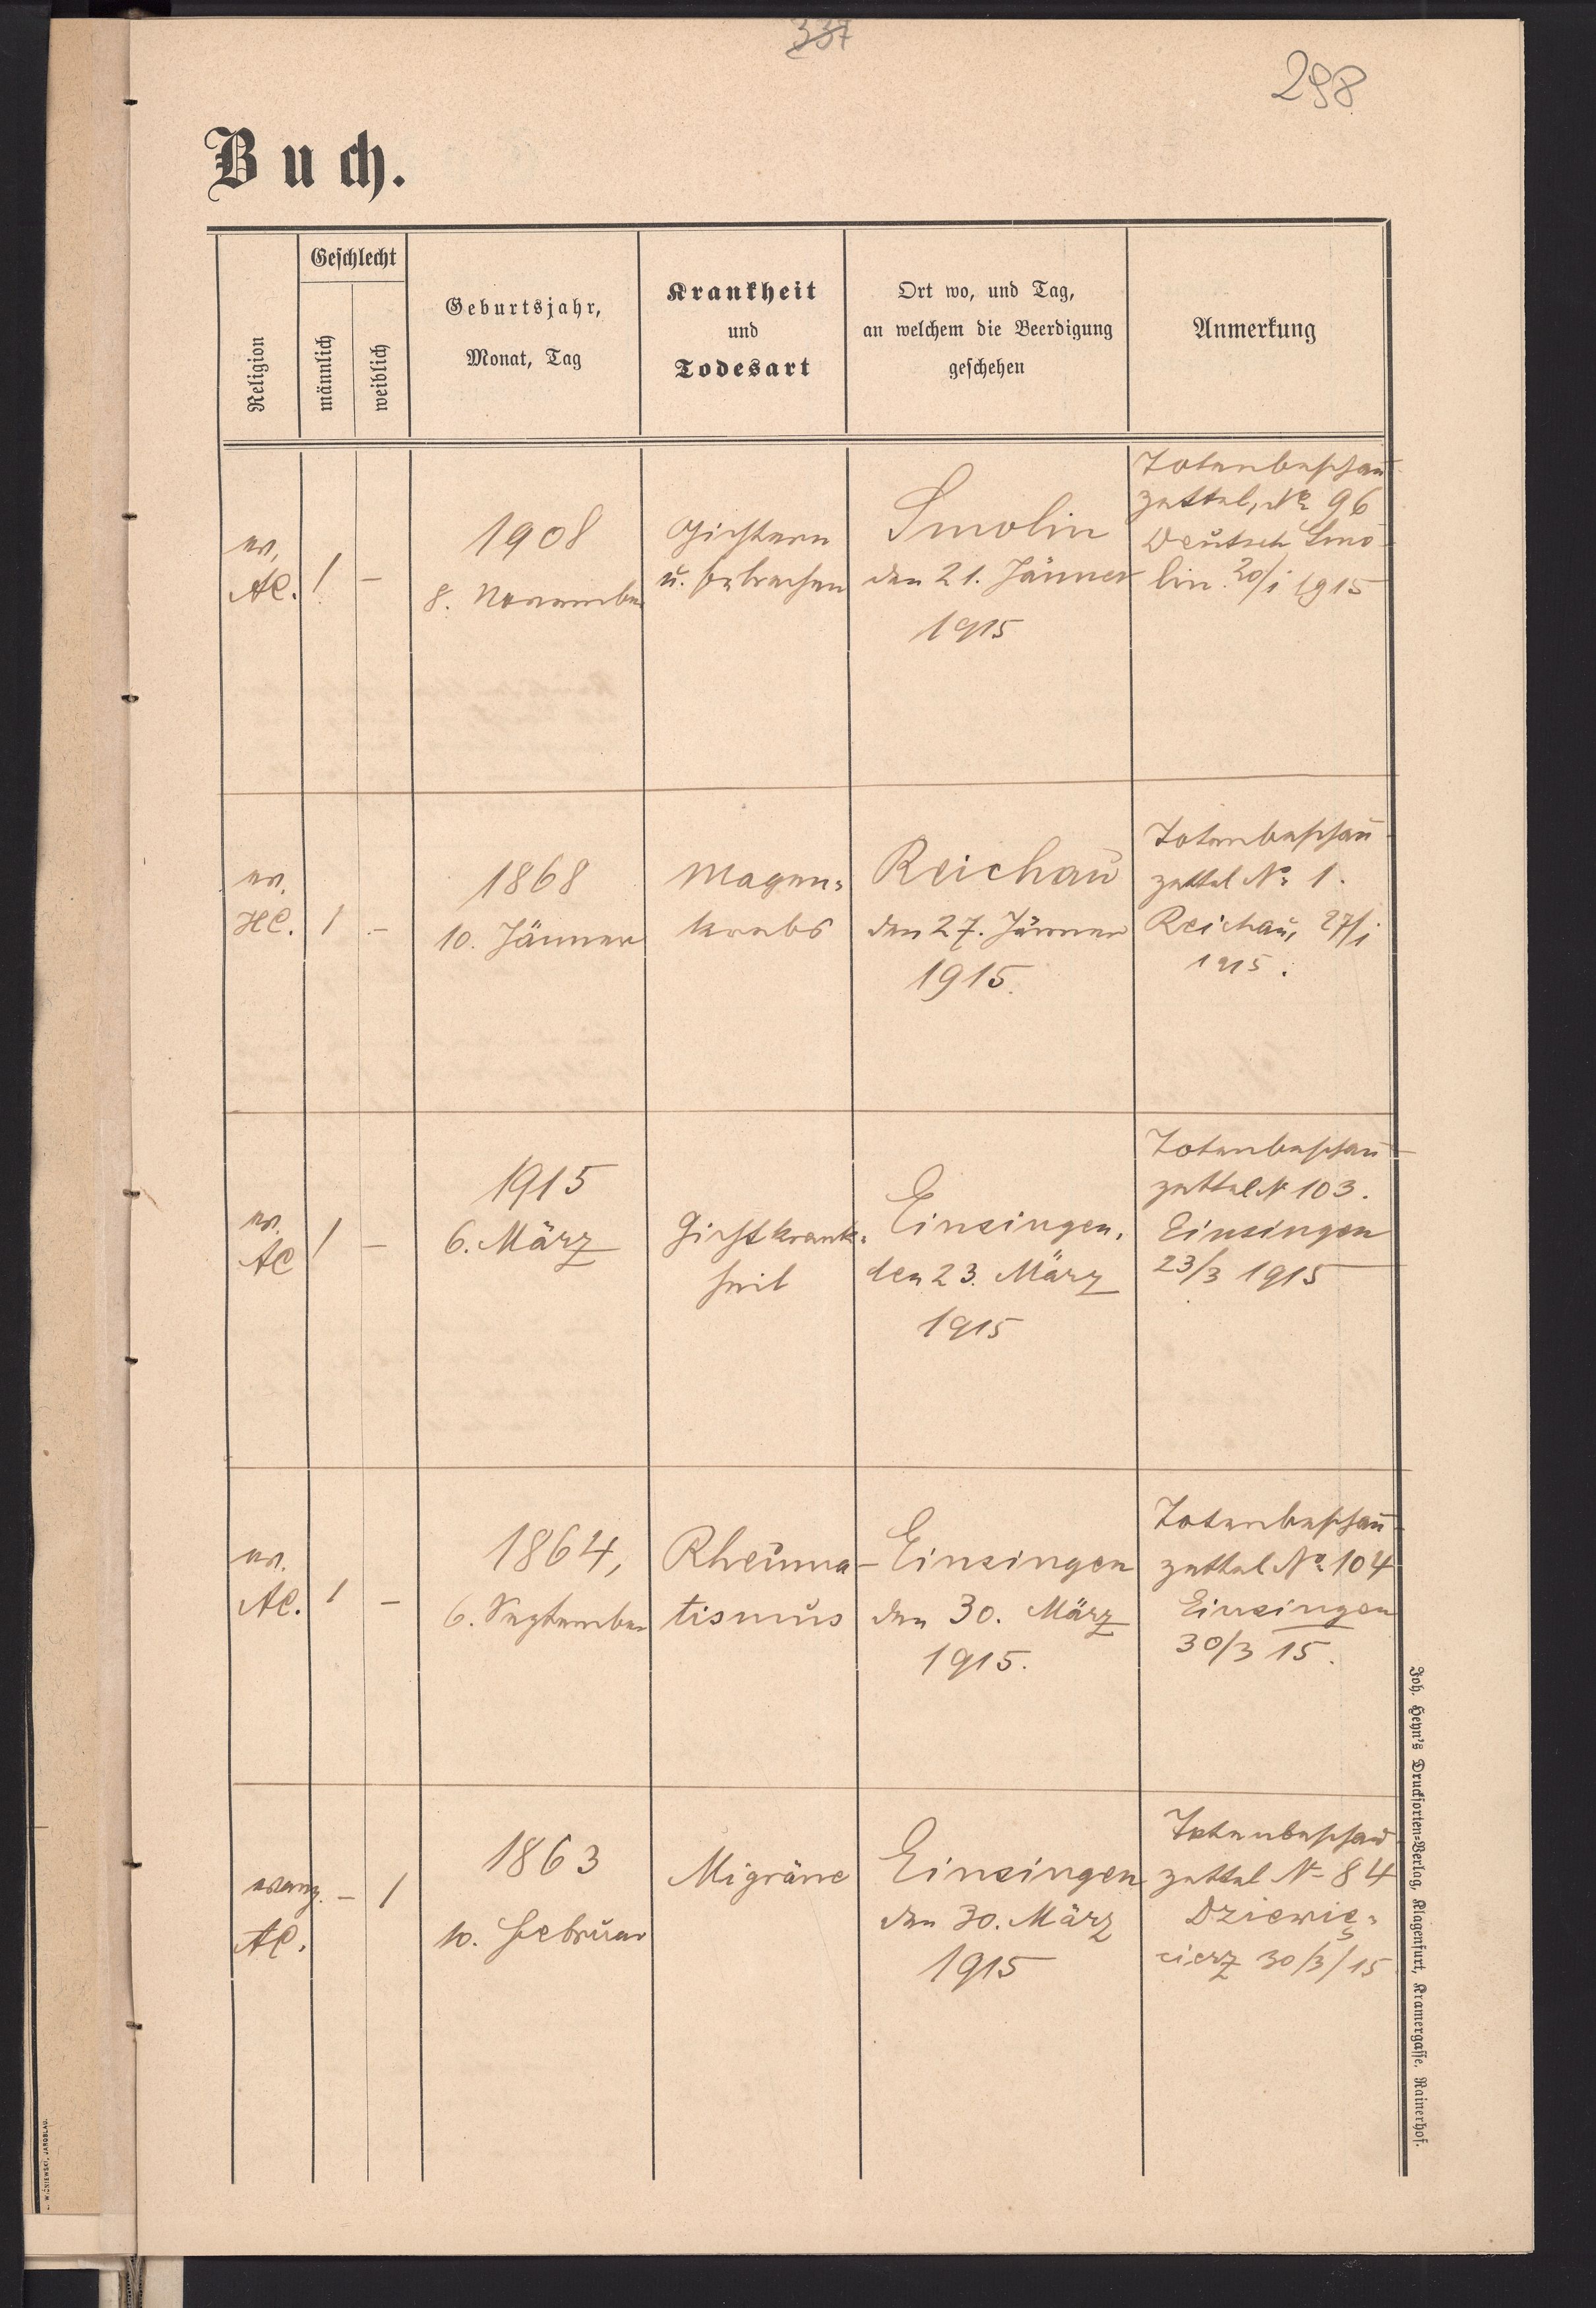 337
298
Buch.
Religion
Geschlecht
männlich
weiblich
Geburtsjahr,
Monat, Tag
Krankheit
und
Todesart
Ort wo, und Tag,
an welchem die Beerdigung
geschehen
Anmerkung
ev,
AC.
1
–
1908
8. November
u. Erbrechen
Smolin
den 21. Jänner
1915
Totenbeschau
zettel, No 96
Deutsch Smo-
lin 20/1 1915
ev.
HC.
1
–
1868
10. Jänner
Magen=
krebs
Reichau
den 27. Jänner
1915.
Totenbeschau
zettel No 1.
Reichau, 27/1
1915.
ev.
AC
1
–
1915
6. März
Gichtkrank=
heit
Einsingen,
den 23. März
1915
Totenbeschau
zettel N 103.
Einsingen
23/3 1915
ev.
AC.
1
–
1864,
6. September
Rheuma-
tismus
Einsingen
den 30. März
1915.
Totenbeschau
zettel No 104
Einsingen
30/3 15.
evang.
AC.
–
1
1863
10. Februar
Migräne
Einsingen
den 30. März
1915
Totenbeschau
zettel N 84
Dziewię=
cierz 30/3/15
Joh. Heyn's Drucksorten=Verlag, Klagenfurt, Kramergasse, Rainerhof.
WIŚNIEWSKI, JAROSLAU.